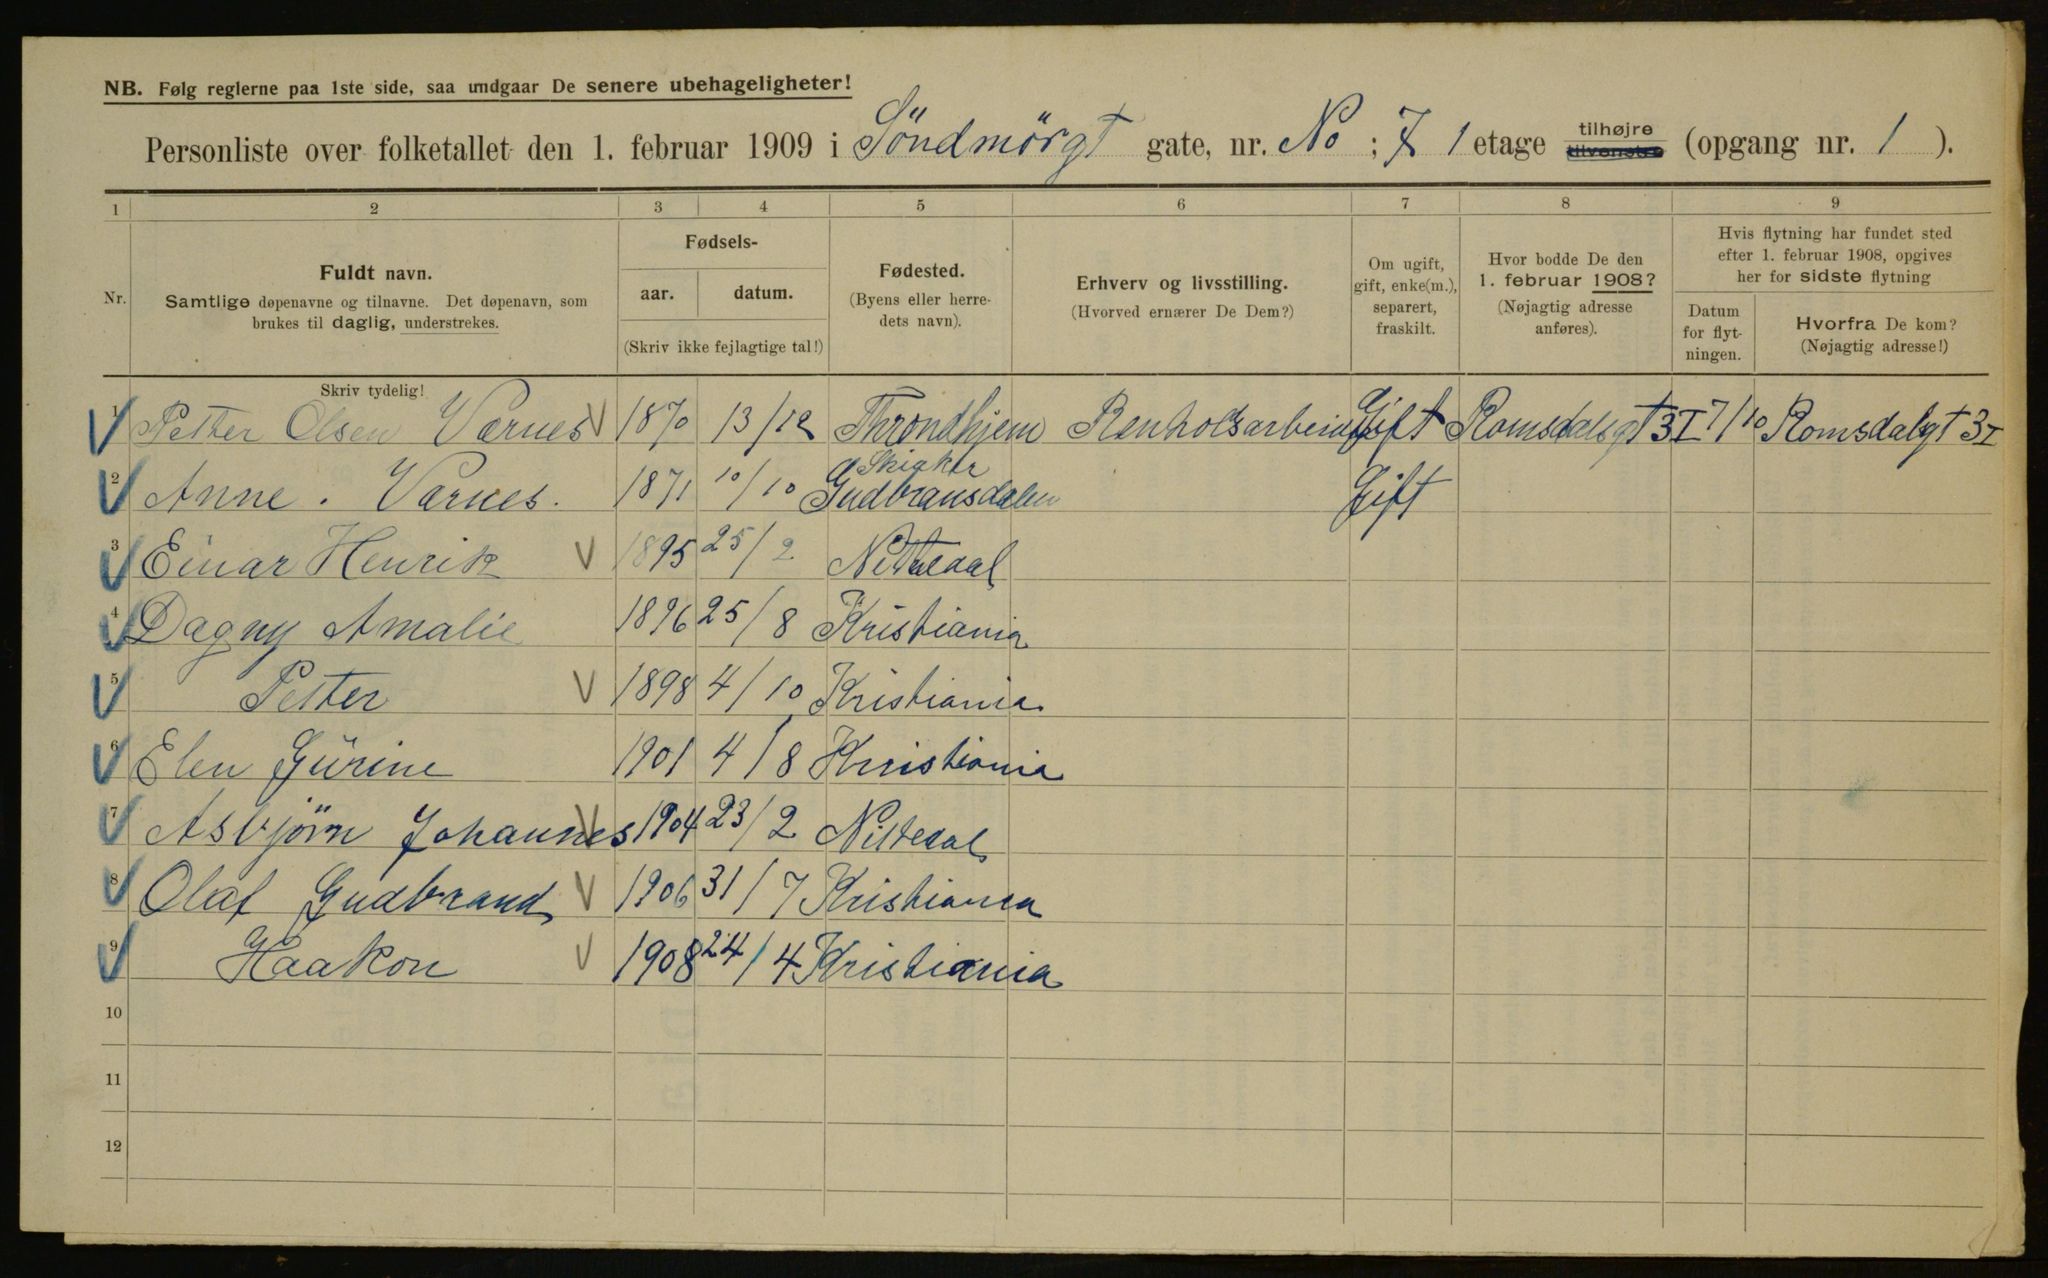 NB. Følg reglerne paa 1ste side, saa undgaar De senere ubehageligheter!
Personliste over folketallet den 1. februar 1909 i Söndmörgt gate, nr. No ; 7 1 etage tilhøjre tilvenstre (opgang nr. 1 ).
1 2 3 4 5 6 7 8 9
Nr.
Fuldt navn.
Samtlige døpenavne og tilnavne. Det døpenavn, som
brukes til daglig, understrekes.
Fødsels-
aar. datum.
(Skriv ikke fejlagtige tal!)
Fødested.
(Byens eller herre-
dets navn).
Erhverv og livsstilling.
(Hvorved ernærer De Dem?)
Om ugift,
gift, enke(m.),
separert,
fraskilt.
Hvor bodde De den
1. februar 1908?
(Nøjagtig adresse
anføres).
Hvis flytning har fundet sted
efter 1. februar 1908, opgives
her for sidste flytning
Datum
for flyt-
ningen.
Hvorfra De kom?
(Nøjagtig adresse!)
Skriv tydelig!
1 Petter Olsen Værnes V 1870 13/12 Throndhjem Gift Romsdalsgt 3 I 7/10 Romsdalgt 3 I
2 Anne . Værnes. 1871 10/10 Skiaker Gudbransdalen Gift
3 Einar Henrik V 1895 25/2 Nittedal
4 Dagny Amalie 1896 25/8 Kristiania
5 Petter V 1898 4/10 Kristiania
6 Elen Gürine 1901 4/8 Kristiania
7 Asbjörn Johannes V 1904 23/2 Nittedal
8 Olaf Gudbrand V 1906 31/7 Kristiania
9 Haakon V 1908 24/4 Kristiania
10
11
12